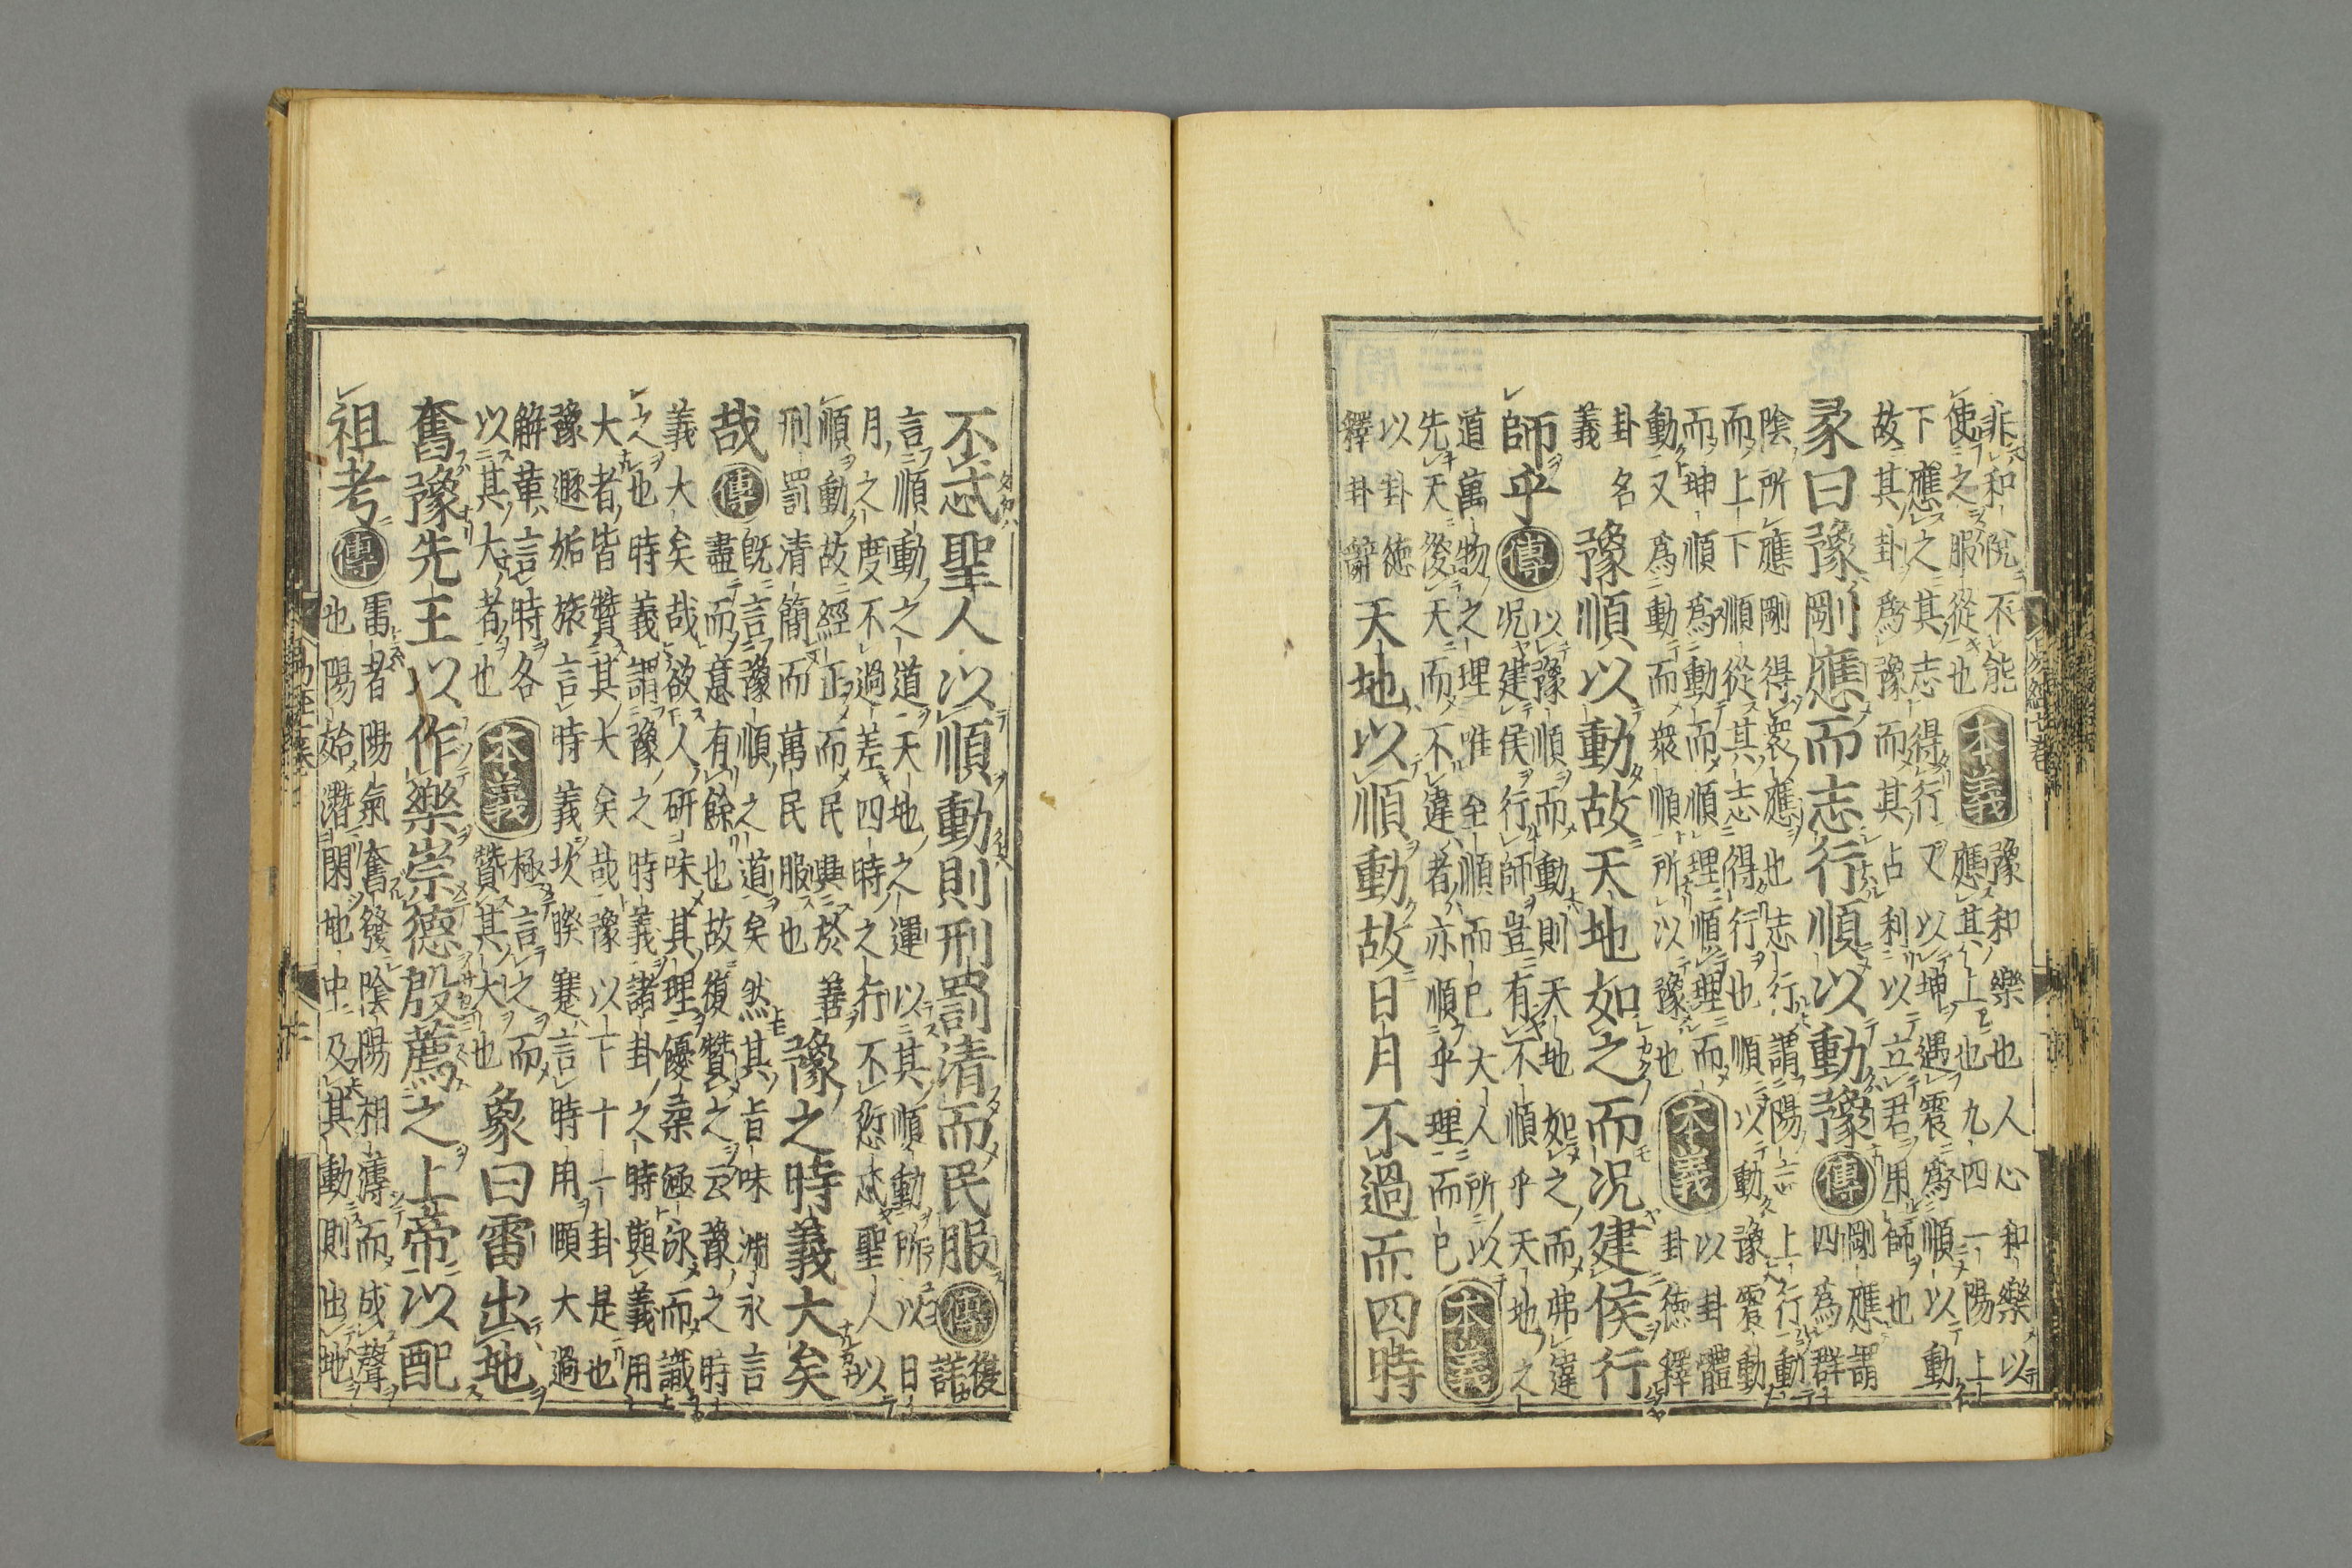 非和悅不能
使之服從也
本義
豫和樂也人心和樂以
應其上也九四一陽上
下應之其志得行又以坤遇震爲順以動
故其卦爲豫而其占利以立君用師也
彖曰豫剛應而志行順以動豫
傳
剛應謂
四爲群
陰所應剛得衆應也志行謂陽志上行動
而上下順從其志得行也順以動豫震動
而坤順爲動而順理順理而
動又爲動而衆順所以豫也
本義
以卦體
卦德釋
卦名
義
豫順以動故天地如之而況建侯行
師乎
傳
以豫順而動則天地如之而弗違
況建侯行師豈有不順乎天地之
道萬物之理唯至順而已大人所以
先天後天而不違者亦順乎理而已
本義
以卦德
釋卦辭
天地以順動故日月不過而四時
不忒聖人以順動則刑罰清而民服
傳
復
諾
言順動之道天地之運以其順動所以日
月之度不過差四時之行不愆忒聖人以
順動故經正而民興於善
刑罰清簡而萬民服也
豫之時義大矣
哉
傳
既言豫順之道矣然其旨味淵永言
盡而意有餘也故復贊之云豫之時
義大矣哉欲人研味其理優柔涵泳而識
之也時義謂豫之時義諸卦之時與義用
大者皆贊其大矣哉豫以下十一卦是也
豫遯姤旅言時義坎睽蹇言時用頤大過
解革言時各
以其大者也
本義
極言之而
贊其大也
象曰雷出地
奮豫先王以作樂崇德殷薦之上帝以配
祖考
傳
雷者陽氣奮發陰陽相薄而成聲
也陽始潛閉地中及其動則出地